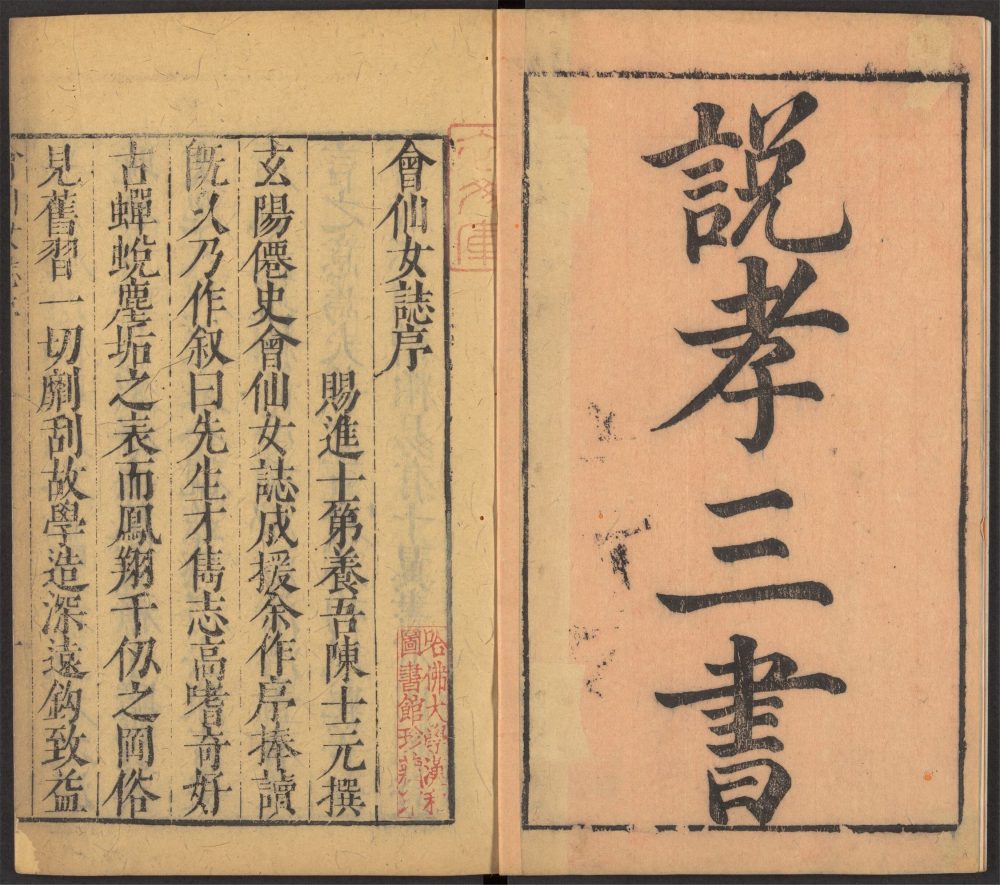 説孝三書
會仙女誌序
賜進士第養吾陳士元撰
玄陽僊史會仙女誌成援余作序捧讀
旣久乃作叙曰先生才雋志高嗜奇好
古蟬蛻塵垢之表而鳳翔千仞之岡俗
見舊習一切劘刮故學造深遠鈎致益
哈佛大學漢和
圖書館珍藏